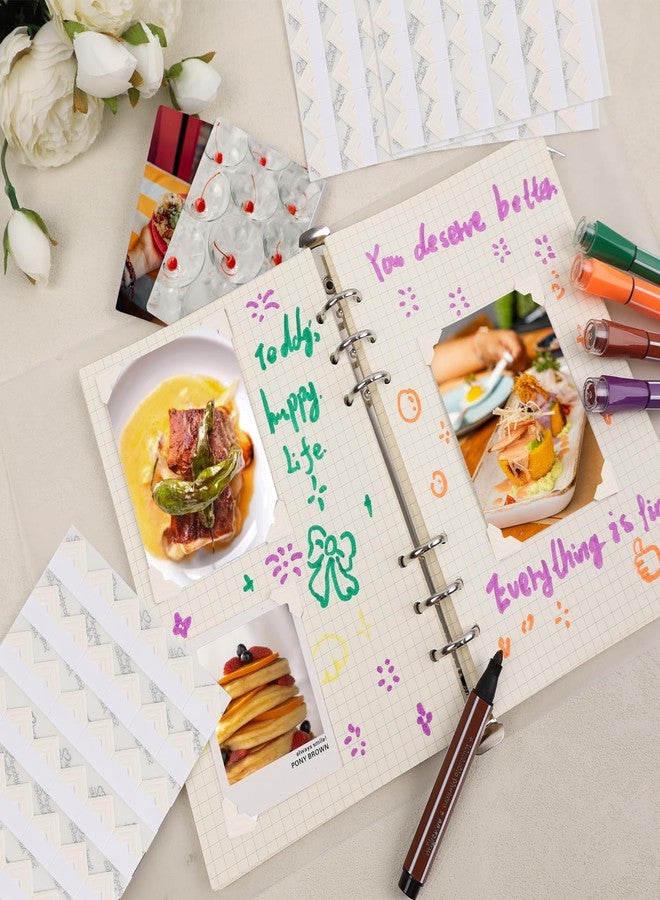 Toddy,
happy.
Life.
always smile!
PONY BROWN
You deserve better
Everything is fin